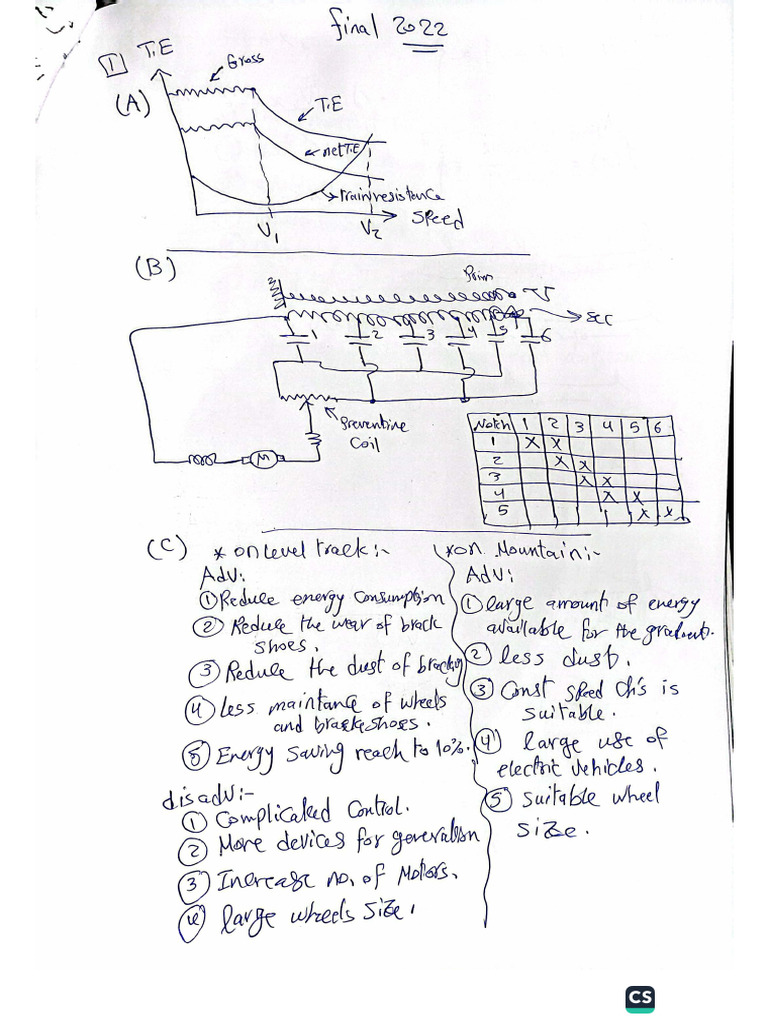 final 2022
1 T.E
Gross
(A)
T.E
net T.E
train resistance
Speed
V1 V2
(B)
Prim
Sec
1 2 3 4 5 6
Preventive
Coil
M
Notch 1 2 3 4 5 6
1 X X
2 X X
3 X X
4 X X
5 X X
(C) * on Level track:-
Adv:
① Reduce energy Consumption
② Reduce the wear of brack
shoes.
③ Reduce the dust of bracking
④ Less maintance of wheels
and brackshoes.
⑤ Energy saving reach to 10%.
disadv:-
① Complicated Control.
② More devices for generation
③ Increase no. of Motors.
④ large wheels size.
* on Mountain:-
Adv:
① large amount of energy
available for the gradient.
② less dust.
③ Const speed Ch's is
suitable.
④ large use of
electric vehicles.
⑤ suitable wheel
size.
CS